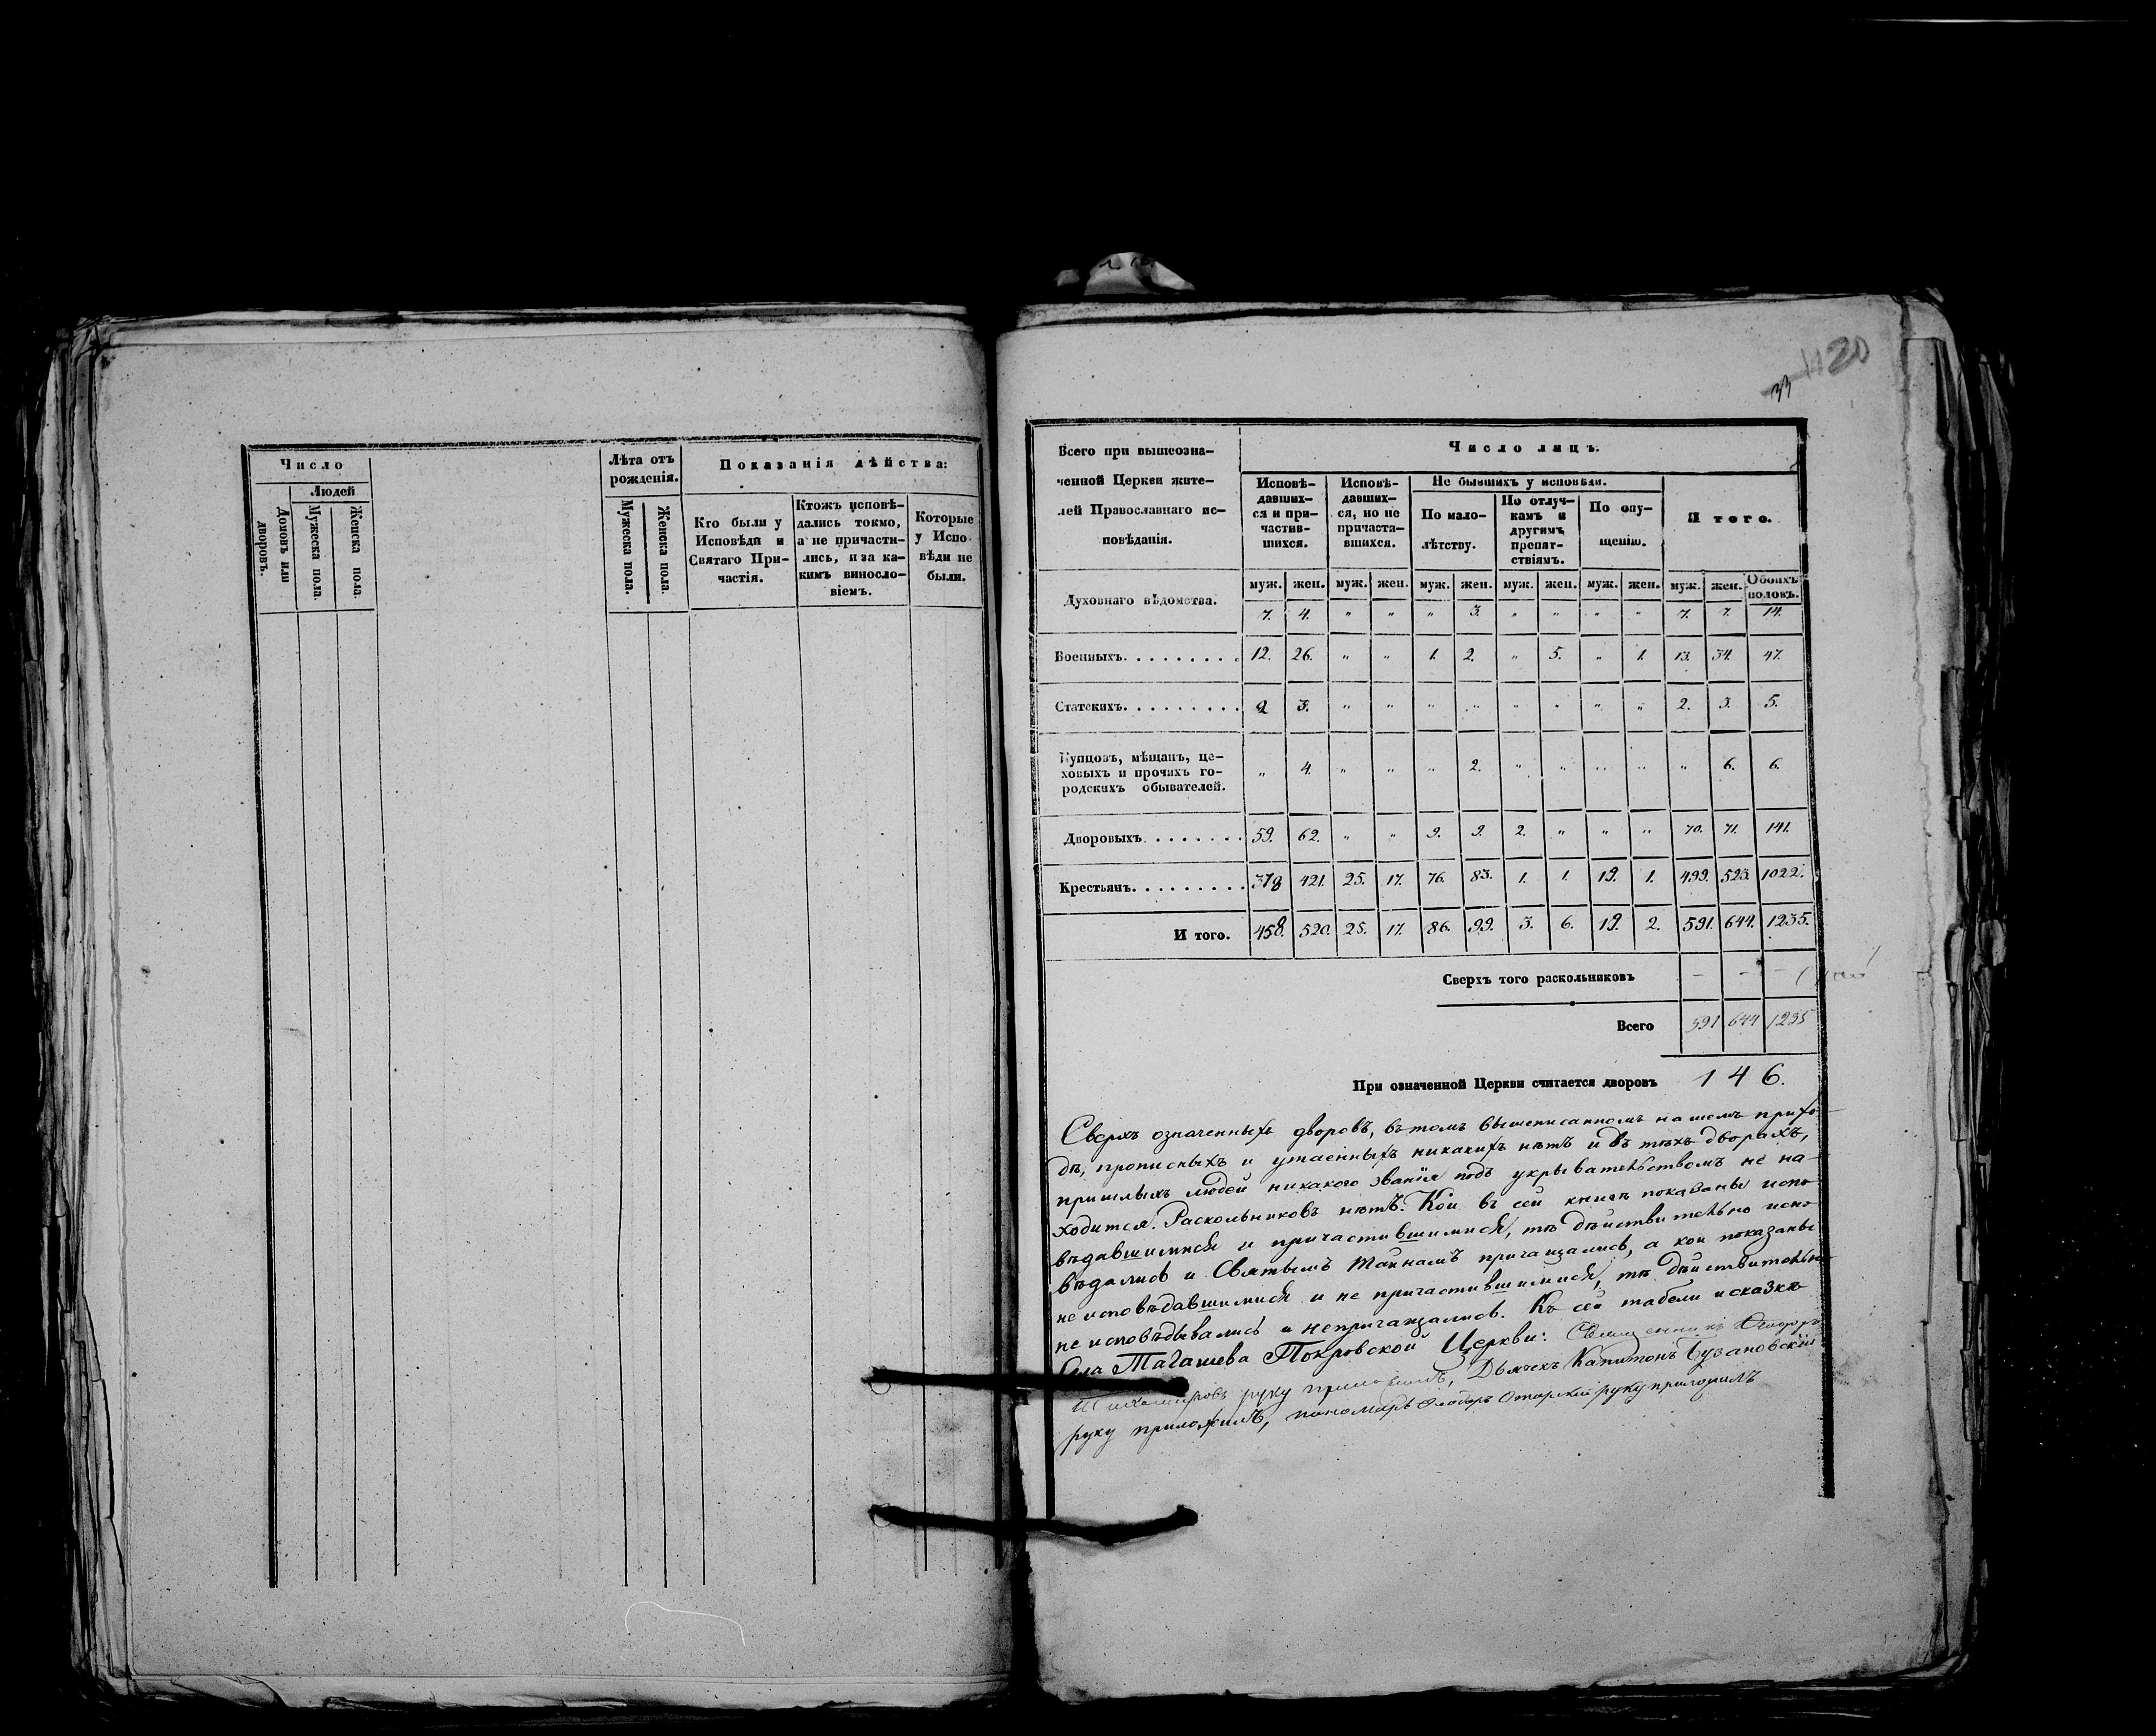 Число
Людей
Домовъ или дворовъ.
Мужеска пола.
Женска пола.
Лѣта отъ рожденія.
Мужеска пола.
Женска пола.
Показанія дѣйства:
Кто были у
Исповѣди и
Святаго При-
частія.
Ктожъ исповѣ-
дались токмо,
а не причасти-
лись, и за ка-
кимъ винносло-
віемъ.
Которые
у Испо-
вѣди не
были.
1120
33
Всего при вышеозна-
ченной Церкви жите-
лей Православнаго ис-
повѣданія.
Число лицъ.
Исповѣ-
давших-
ся и при-
частив-
шихся.
Исповѣ-
давших-
ся, но не
причасти-
вшихся.
Не бывшихъ у исповѣди.
По мало-
лѣтству.
По отлуч-
камъ и
другимъ
препят-
ствіямъ.
По опу-
щенію.
И того.
муж. жен. муж. жен. муж. жен. муж. жен. муж. жен. муж. жен. Обоихъ половъ.
Духовнаго вѣдомства. 7. 4. „ „ „ 3. „ „ „ „ 7. 7. 14.
Военныхъ. . . . . . . . . 12. 26. „ „ 1. 2. „ 5. „ 1. 13. 34. 47.
Статскихъ. . . . . . . . . 2 3. „ „ „ „ „ „ „ „ 2. 3. 5.
Купцовъ, мѣщанъ, це-
ховыхъ и прочихъ го-
родскихъ обывателей. „ 4. „ „ „ 2. „ „ „ „ „ 6. 6.
Дворовыхъ . . . . . . . 59. 62. „ „ 9. 9. 2. „ „ „ 70. 71. 141.
Крестьянъ. . . . . . . . . 378 421. 25. 17. 76. 83. 1. 1. 19. 1. 499. 523. 1022.
И того. 458. 520. 25. 17. 86. 99. 3. 6. 19. 2. 591. 644. 1235.
Сверхъ того раскольниковъ — — —
Всего 591 644 1235
При означенной Церкви считается дворовъ 146.
Сверхъ означенныхъ дворовъ, въ томъ вышеписанномъ нашемъ прихо-
дѣ, прописныхъ и утаенныхъ никакихъ нѣтъ и въ тѣхъ дворахъ,
пришлыхъ людей никакого званія подъ укрывательствомъ не на-
ходится. Раскольниковъ нѣтъ. Кои въ сей книгѣ показаны испо-
вѣдавшимися и причастившимися, тѣ дѣйствительно испо-
вѣдались и Святымъ Тайнамъ причащались, а кои показаны
не исповѣдавшимися и не причастившимися, тѣ дѣйствительно
не исповѣдывались и непричащались. Къ сей табели и сказкѣ
Села Тагашева Покровской Церкви: Священникъ Ѳеодоръ
Тихомировъ руку приложилъ, Дьячекъ Капитонъ Чузановскій
руку приложилъ, пономарь руку приложилъ